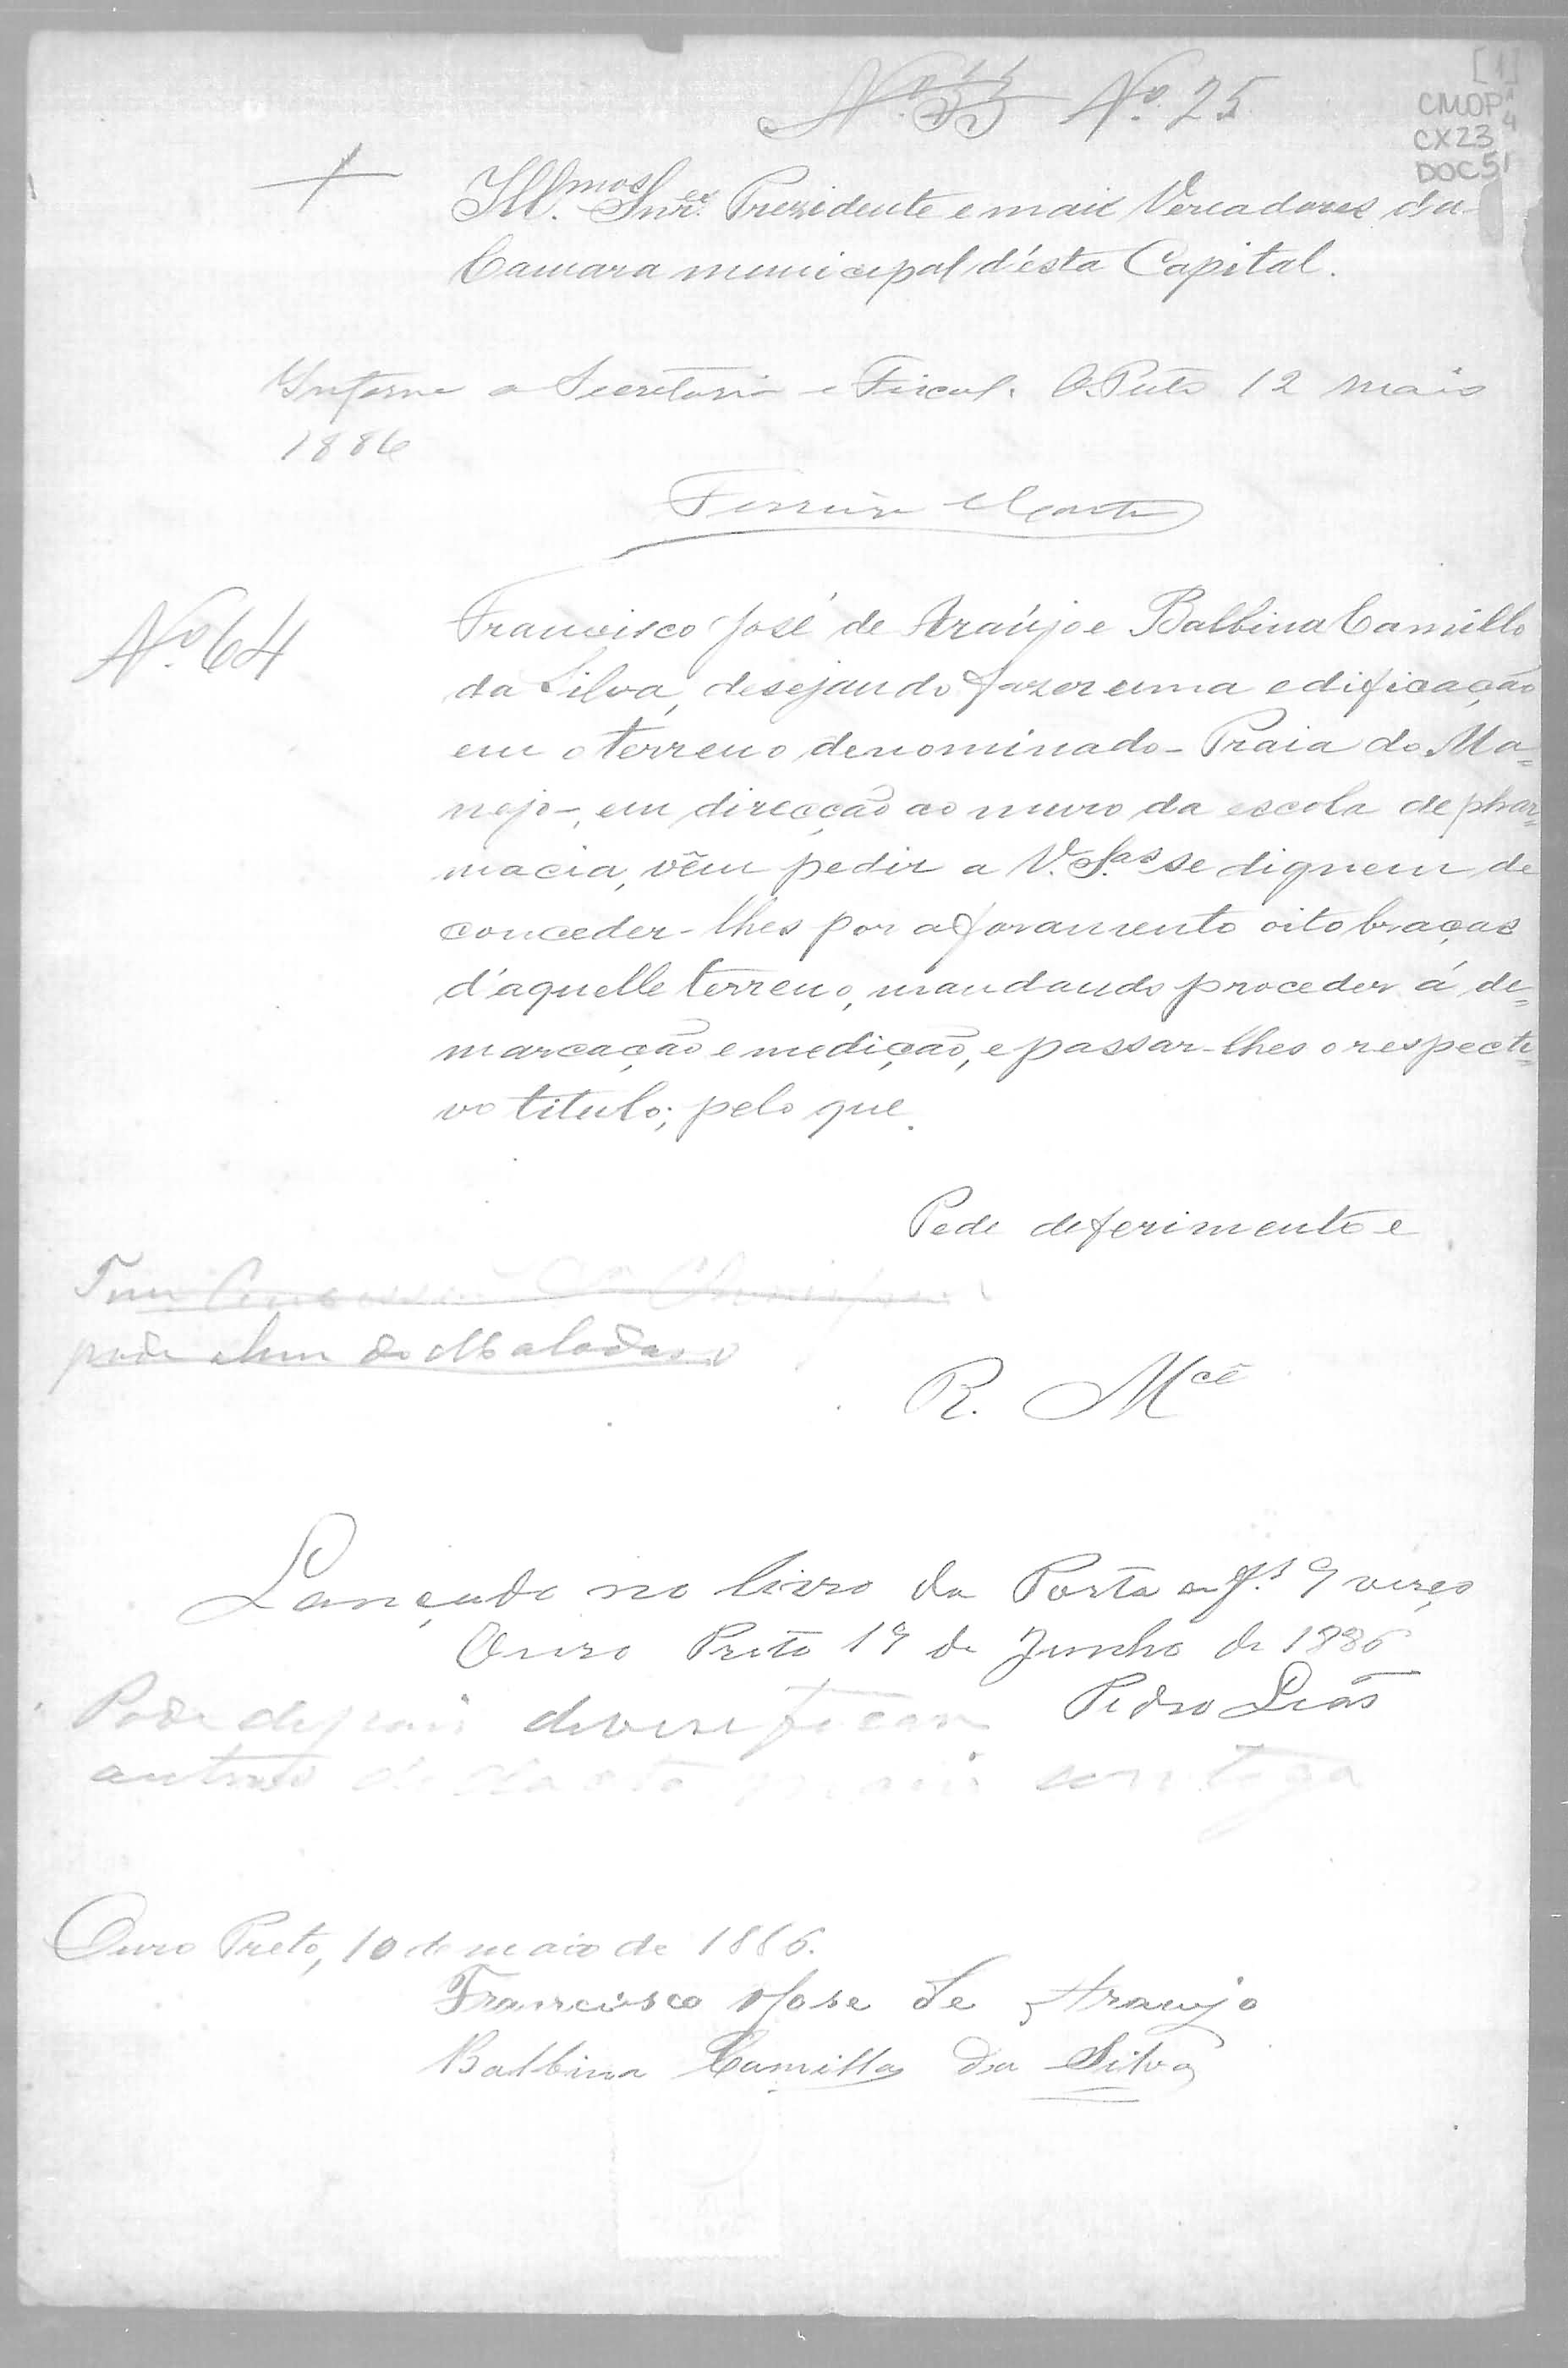 [1]
CMOP
CX23
DOC51
Nº 33 Nº 25
Ill.mos Snr.es Prezidente e mais Vereadores da
Camara municipal d'ésta Capital.
Informe a Secretaria e Fiscal. O. Preto 12 maio
1886
Nº 64
Francisco José de Araújo e Balbina Camillo
da Silva, desejando fazer uma edificação
em o terreno denominado - Praia do Ma=
nejo -, em direcção ao muro da escola de phar=
macia, vêm pedir a V. S.as se dignem de
conceder-lhes por aforamento oito braças
d'aquelle terreno, mandando proceder á de=
marcação e medição, e passar-lhes o respecti=
vo titulo; pelo que.
Pede deferimento e
R. Mcê
Lançado no livro da Porta a fs 9 verço
Ouro Preto 19 de Junho de 1886
Pedro Leão
Ouro Preto, 10 de maio de 1886.
Francisco Jose de Araujo
Balbina Camilla da Silva